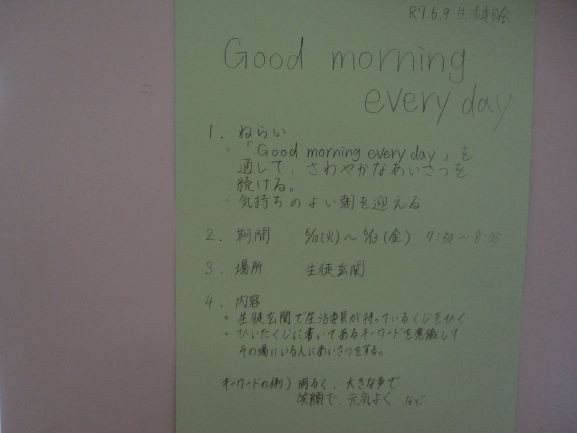 R7.6.9 生活委員会
Good morning
every day
1. ねらい
・「Good morning every day」を
通して、さわやかなあいさつを
続ける。
・気持ちのよい朝を迎える
2. 期間 6/10(火)～6/13(金) 7:50～8:05
3. 場所 生徒玄関
4. 内容
・生徒玄関で生活委員が持っているくじをひく
・ひいたくじに書いてあるキーワードを意識して
その場にいる人にあいさつをする。
キーワードの例) 明るく、大きな声で
笑顔で、元気よく など